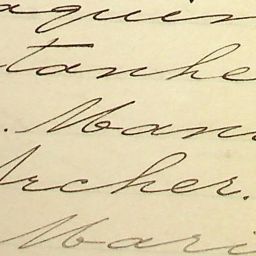 aquin
tanhe
. Man
Archer.
Mari